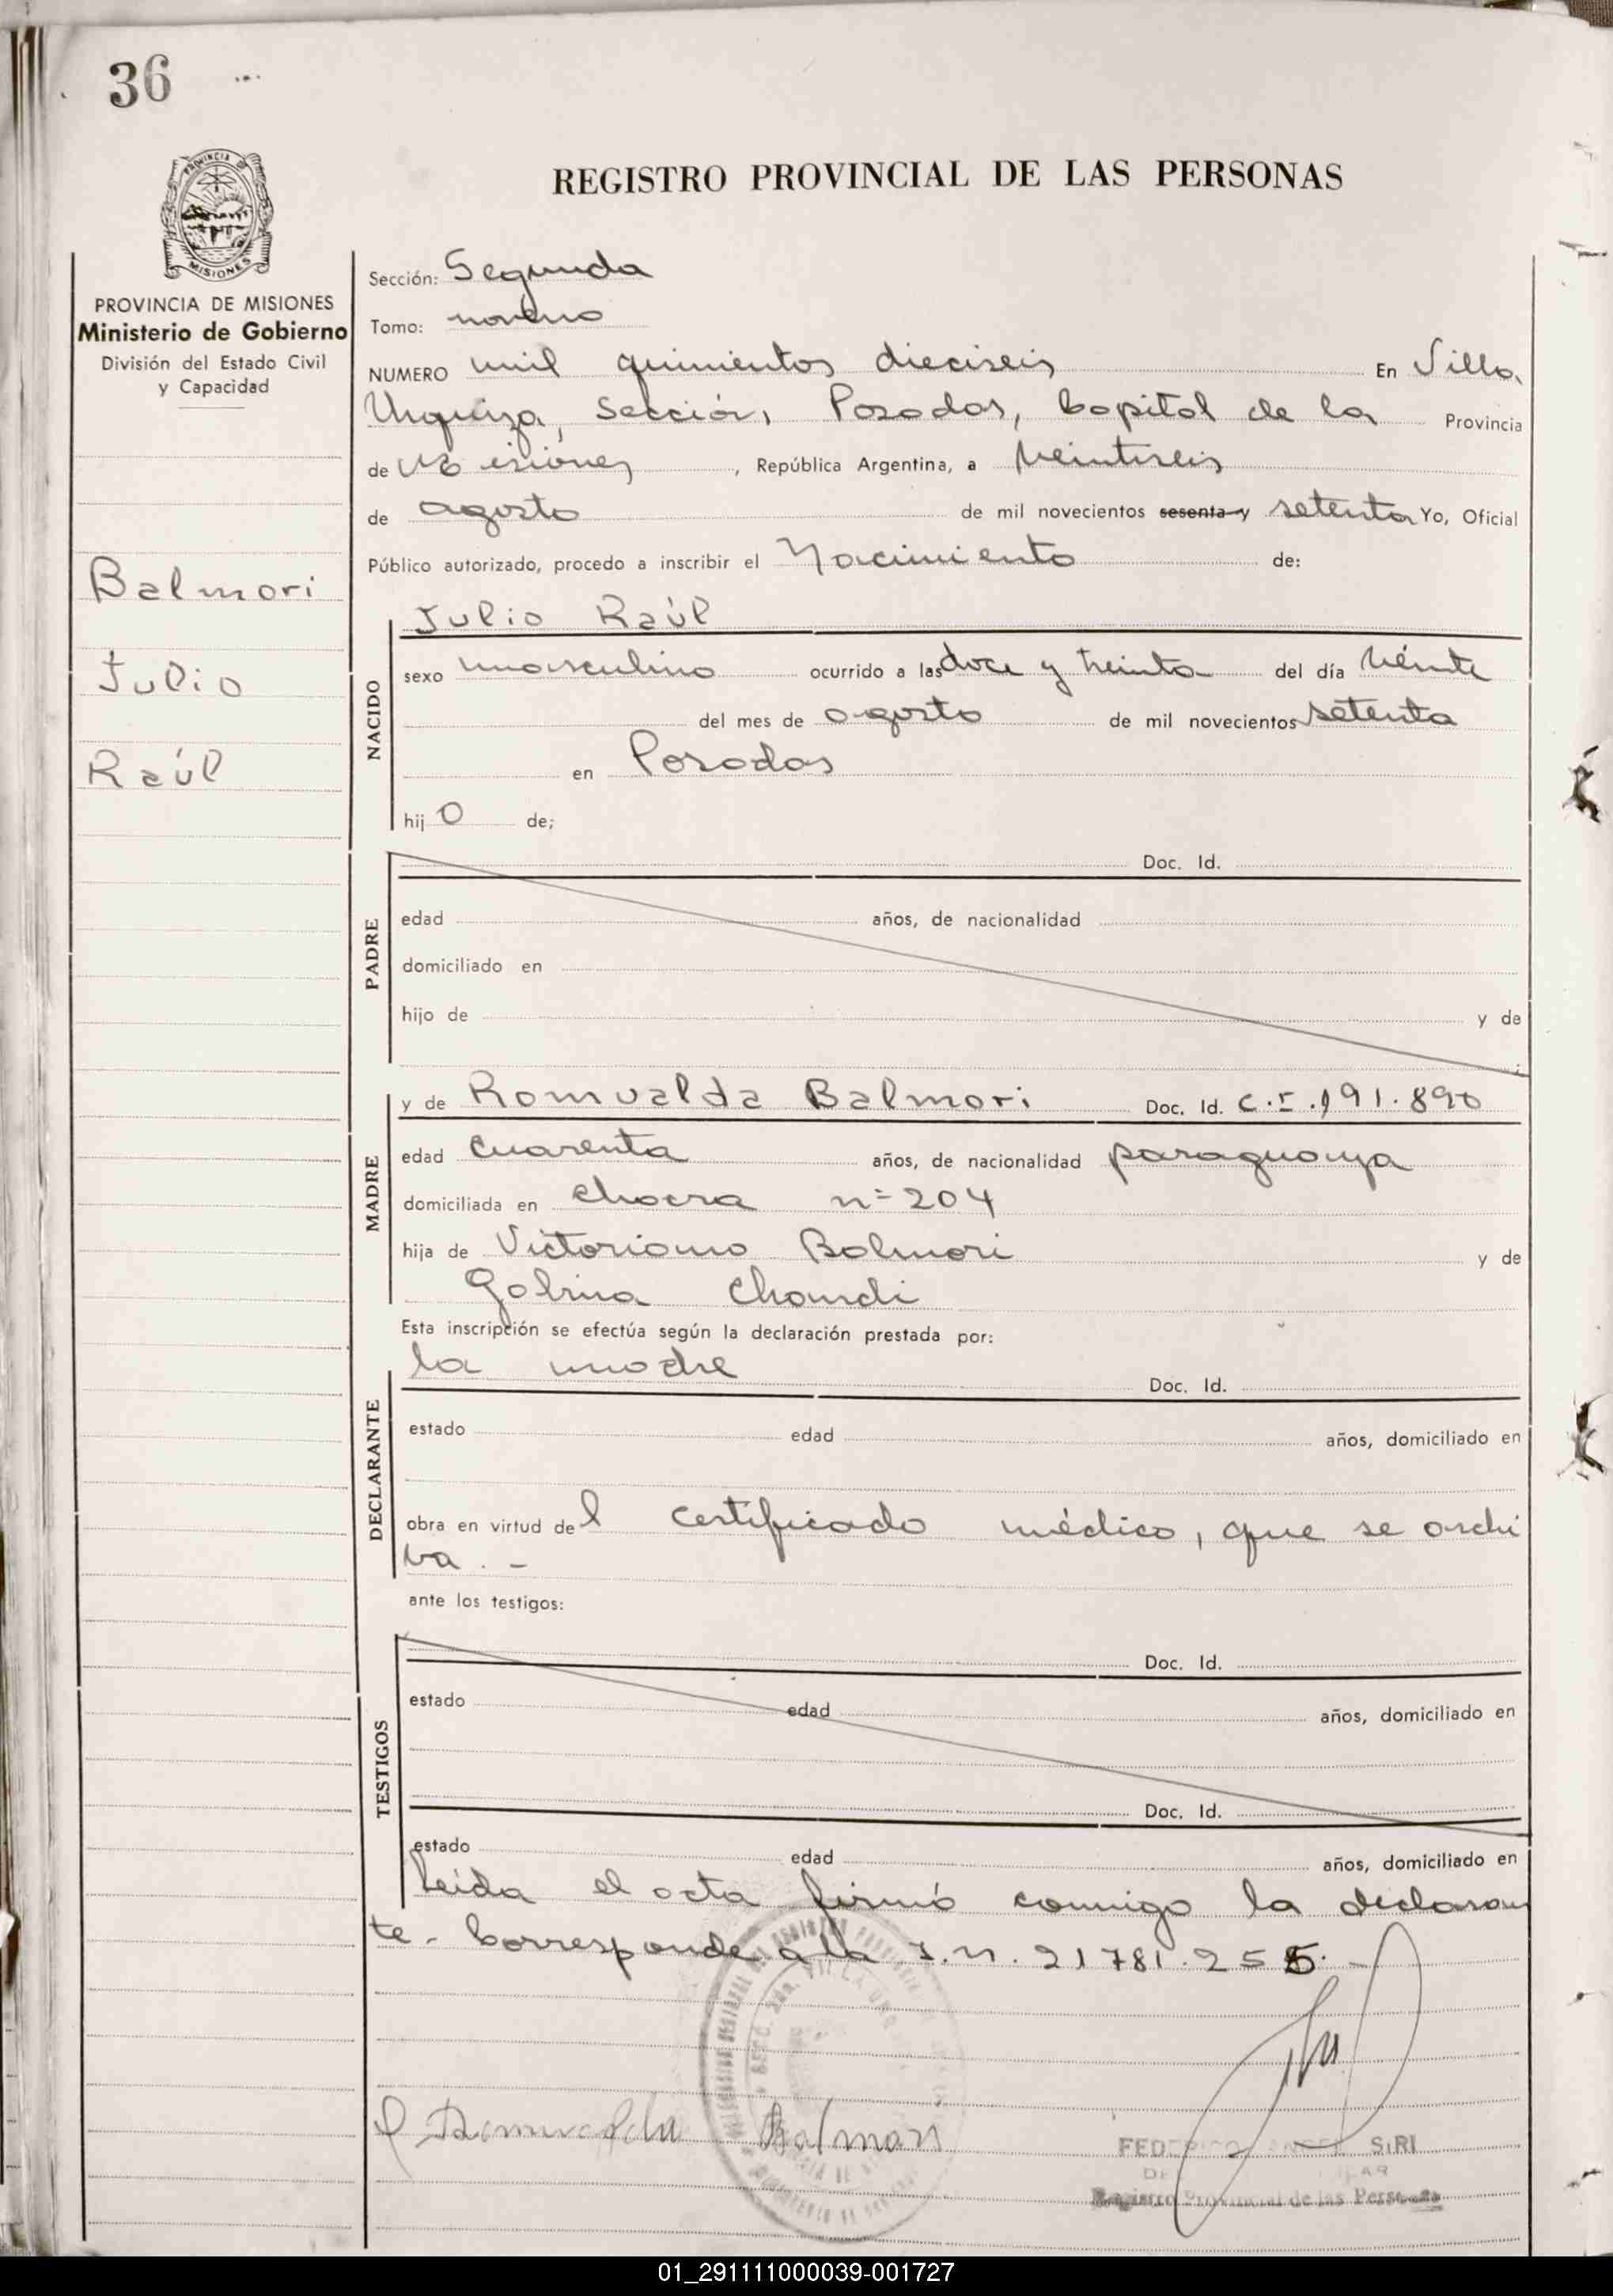 36
PROVINCIA DE
MISIONES
PROVINCIA DE MISIONES
Ministerio de Gobierno
División del Estado Civil
y Capacidad
Balmori
Julio
Raúl
REGISTRO PROVINCIAL DE LAS PERSONAS
Sección: Segunda
Tomo: noveno
NUMERO mil quinientos dieciseis En Villa
Urquiza, Sección, Posadas, Capital de la Provincia
de Misiones, República Argentina, a veintiseis
de agosto de mil novecientos sesenta y setenta Yo, Oficial
Público autorizado, procedo a inscribir el Nacimiento de:
NACIDO
Julio Raúl
sexo masculino ocurrido a las doce y treinta del día veinte
del mes de agosto de mil novecientos setenta
en Posadas
hijo de;
PADRE
Doc. Id.
edad años, de nacionalidad
domiciliado en
hijo de y de
MADRE
y de Romualda Balmori Doc. Id. C.I. 191.890
edad cuarenta años, de nacionalidad paraguaya
domiciliada en chacra nº 204
hija de Victoriano Balmori y de
Chamdi
Esta inscripción se efectúa según la declaración prestada por:
DECLARANTE
la madre Doc. Id.
estado edad años, domiciliado en
obra en virtud del certificado médico, que se archi
va. -
ante los testigos:
TESTIGOS
Doc. Id.
estado edad años, domiciliado en
Doc. Id.
estado edad años, domiciliado en
Leida el acta firmó conmigo la declaran
te. Corresponde a la I.N. 21781.255. -
Romualda Balmori
FEDERICO SIRI
Registro Provincial de las Personas
01_291111000039-001727